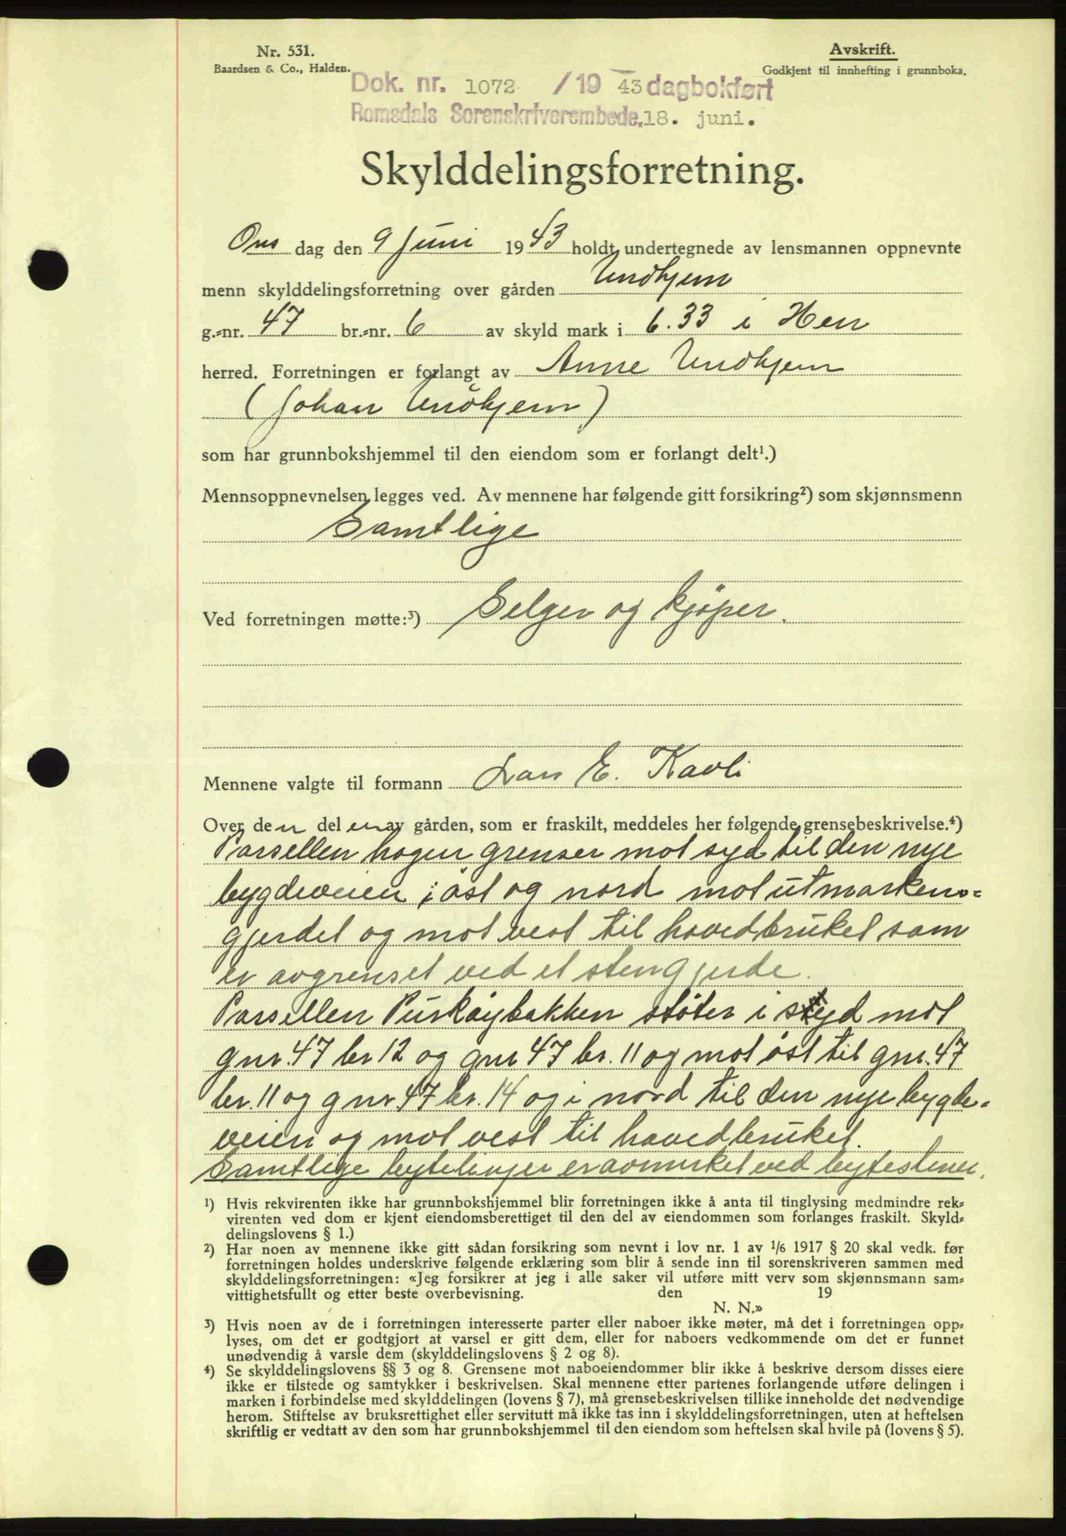 Nr. 531.
Baardsen & Co., Halden.
Avskrift.
Godkjent til innhefting i grunnboka.
Dok. nr. 1072 /19 43 dagbokført
Romsdals Sorenskriverembede, 18. juni.
Skylddelingsforretning.
Ons dag den 9 Juni 1943 holdt undertegnede av lensmannen oppnevnte
menn skylddelingsforretning over gården Undhjem
g.-nr. 47 br.-nr. 6 av skyld mark i 6.33 i Hen
herred. Forretningen er forlangt av Anne Undhjem
(Johan Undhjem)
som har grunnbokshjemmel til den eiendom som er forlangt delt¹.)
Mennsoppnevnelsen legges ved. Av mennene har følgende gitt forsikring²) som skjønnsmenn
Samtlige
Ved forretningen møtte:³) Selger og kjøper.
Mennene valgte til formann Lars E. Kavli
Over den del en av gården, som er fraskilt, meddeles her følgende grensebeskrivelse.⁴)
Parsellen hagen grenser mot syd til den nye
bygdeveien, i øst og nord mot utmarkens-
gjerdet og mot vest til hovedbruket som
er avgrenset ved et stengjerde.
Parsellen Purkøybakken støter i syd mot
gnr. 47 br 12 og gnr 47 br. 11 og mot øst til gnr. 47
br. 11 og gnr 47 br. 14 og i nord til den nye bygde-
veien og mot vest til hovedbruket.
Samtlige bytelinjer er avmerket ved bytestener.
¹) Hvis rekvirenten ikke har grunnbokshjemmel blir forretningen ikke å anta til tinglysing medmindre rek-
virenten ved dom er kjent eiendomsberettiget til den del av eiendommen som forlanges fraskilt. Skyld-
delingslovens § 1.)
²) Har noen av mennene ikke gitt sådan forsikring som nevnt i lov nr. 1 av 1/6 1917 § 20 skal vedk. før
forretningen holdes underskrive følgende erklæring som blir å sende inn til sorenskriveren sammen med
skylddelingsforretningen: «Jeg forsikrer at jeg i alle saker vil utføre mitt verv som skjønnsmann sam-
vittighetsfullt og etter beste overbevisning. den 19
N. N.»
³) Hvis noen av de i forretningen interesserte parter eller naboer ikke møter, må det i forretningen opp-
lyses, om det er godtgjort at varsel er gitt dem, eller for naboers vedkommende om det er funnet
unødvendig å varsle dem (skylddelingslovens § 2 og 8).
⁴) Se skylddelingslovens §§ 3 og 8. Grensene mot naboeiendommer blir ikke å beskrive dersom disses eiere
ikke er tilstede og samtykker i beskrivelsen. Skal mennene etter partenes forlangende utføre delingen i
marken i forbindelse med skylddelingen (lovens § 7), må grensebeskrivelsen tillike inneholde det nødvendige
herom. Stiftelse av bruksrettighet eller servitutt må ikke tas inn i skylddelingsforretningen, uten at heftelsen
skriftlig er vedtatt av den som har grunnbokshjemmel til den eiendom som heftelsen skal hvile på (lovens § 5).